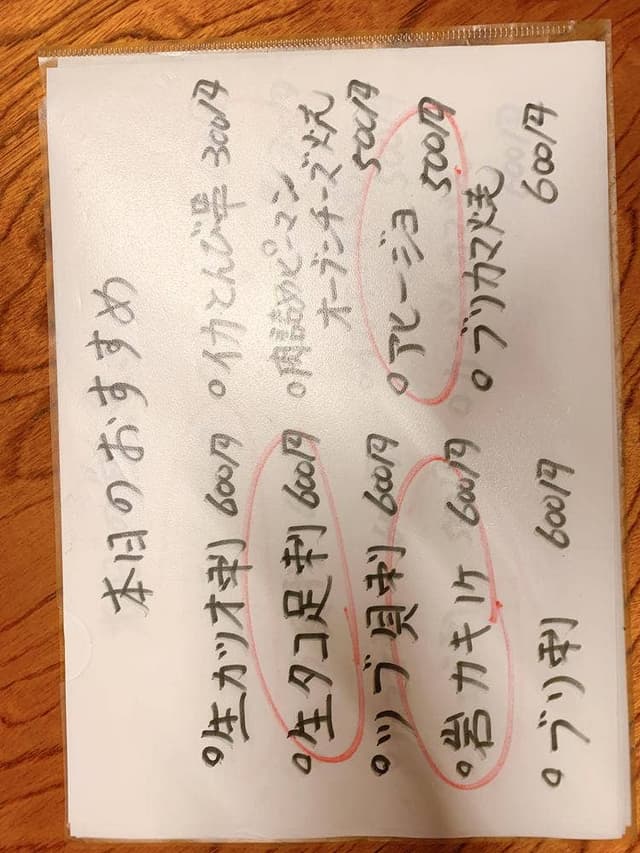 本日のおすすめ
○生ガツオ刺 600円
○生タコ足刺 600円
○ツブ貝刺 600円
○岩カキ1ケ 600円
○ブリ刺 600円
○イカとんび串 300円
○肉詰めピーマン
オーブンチーズ焼 500円
○アヒージョ 500円
○ブリカマ焼 600円